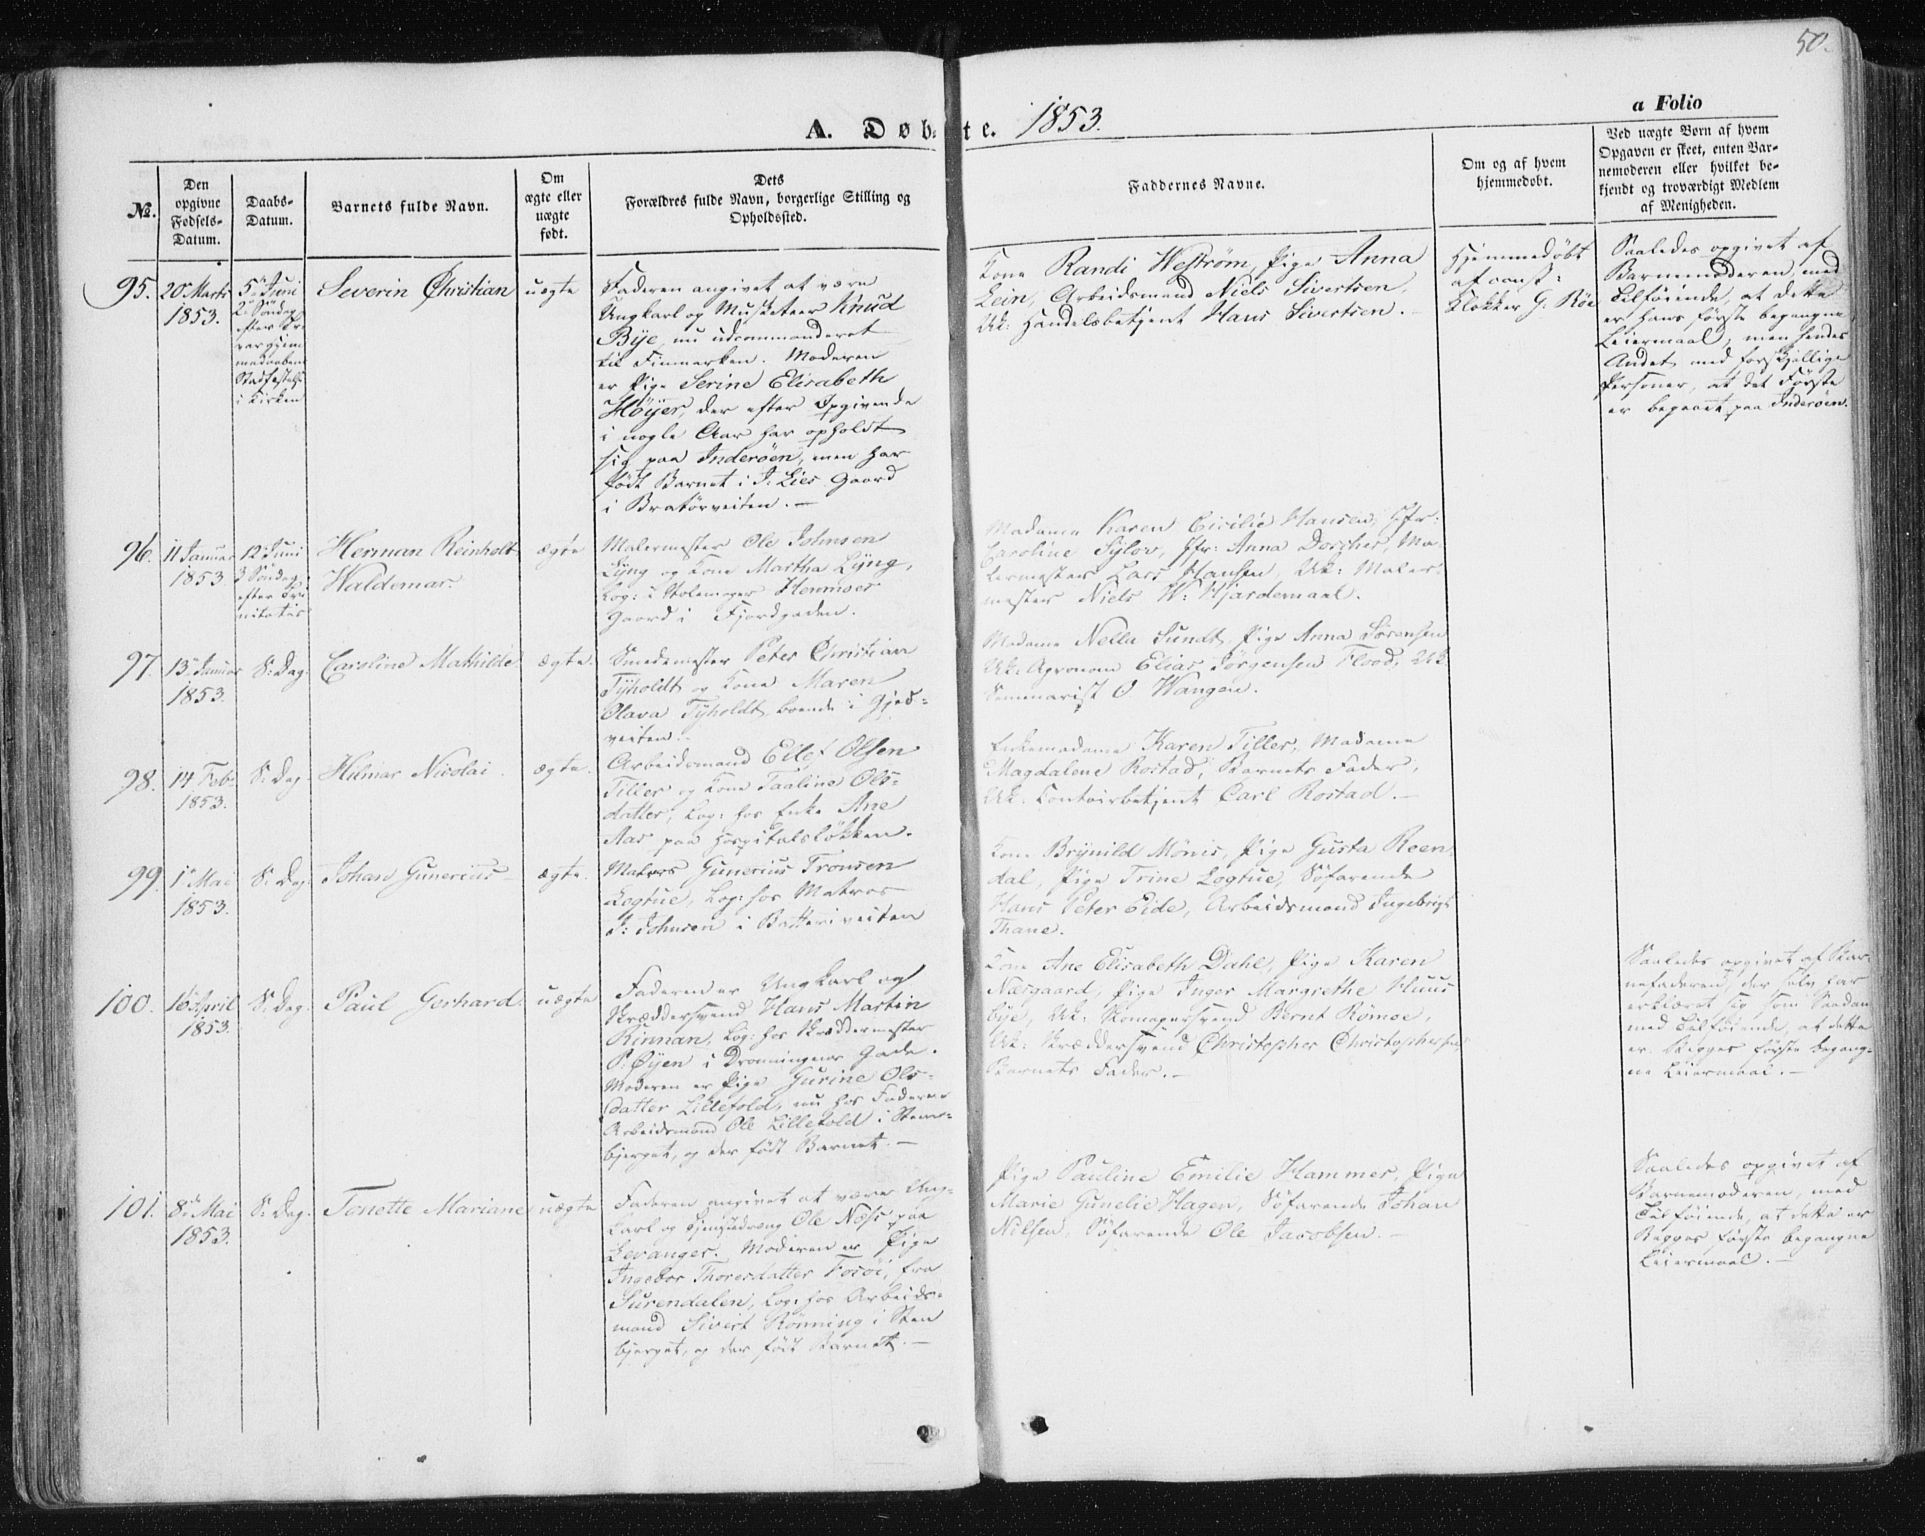 50.
A. Døbte. 1853.
a Folio
No.
Den
opgivne
Fødsels-
Datum.
Daabs-
Datum.
Barnets fulde Navn.
Om
ægte eller
uægte
født.
Dets
Forældres fulde Navn, borgerlige Stilling og
Opholdssted.
Faddernes Navne.
Om og af hvem
hjemmedøbt.
Ved uægte Børn af hvem
Opgaven er skeet, enten Bar-
nemoderen eller hvilket be-
kjendt og troværdigt Medlem
af Menigheden.
95.
20 Marts
1853.
5 Juni
2 Søndag
efter Tr.
i Kirken
Severin Christian
uægte
Faderen angivet at være
Ungkarl og Musketeer Knud
Bye, nu udcommanderet
til Finmarken. Moderen
er Pige Serine Elisabeth
Höyer, der efter Opgivende
i nogle Aar har opholdt
sig paa Inderöen, men har
født Barnet i J: Lies Gaard
i Bratörveiten. —
Kone Randi Weström, Pige Anna
Lein, Arbeidsmand Niels Sivertsen,
Uk: Handelsbetjent Hans Sivertsen. —
Hjemmedöbt
af const:
Klokker G. Röe
Saaledes opgivet af
Barnemoderen, med
Tilföiende, at dette
er hans første begangne
Leiermaal, men hendes
Andet med forskjellige
Personer, at det Første
er begaaet paa Inderöen.
96.
11 Januar
1853.
12 Juni
3 Söndag
efter Tri
nitatis
Herman Reinholt
Waldemar.
ægte
Malermester Ole Johnsen
Lyng og Kone Martha Lyng,
Log: i Stolemager Hemmoes
Gaard i Fjordgaden.
Madame Karen Cicilie Hansen, Jfr:
Caroline Sylow, Jfr: Anna Dorcher, Ma-
lermester Lars Hansen, Uk: Maler-
mester Niels W: Hjardemaal.
97.
13 Januar
1853.
S: Dag.
Caroline Mathilde
ægte.
Smedemester Peter Christian
Tyholdt og Kone Maren
Olava Tyholdt, boende i Gjed-
veiten.
Madame Nella Sundt, Pige Anna Sörensen
Uk: Agronom Elias Jörgensen Flood, Uk:
Seminarist O Wangen.
98.
14 Feb.
1853.
S: Dag
Hilmar Nicolai.
ægte.
Arbeidsmand Eilef Olsen
Tiller og Kone Taaline Ols-
datter, Log: hos Enke Ane
Aas paa Hospitalslökken.
Enkemadame Karen Tiller, Madame
Magdalene Rostad, Barnets Fader,
Uk: Contoirbetjent Carl Rostad. —
99.
1 Mai
1853.
S: Dag.
Johan Gunerius
ægte.
Matros Gunerius Tronsen
Logtue, Log: hos Matros
J: Johnsen i Batteriveiten
Kone Brynild Mönis, Pige Gusta Roen-
dal, Pige Trine Logtue, Söfarende
Hans Peter Eide, Arbeidsmand Ingebrigt
Thane.
100.
16 April
1853.
S: Dag.
Paul Gerhard.
uægte
Faderen er Ungkarl og
Skræddersvend Hans Martin
Kinnan, Log: hos Skræddermester
P: Öyen i Dronningens Gade.
Moderen er Pige Gurine Ols-
datter Lillefold, nu hos Faderen
Arbeidsmand Ole Lillefold i Steen-
bjerget, og der født Barnet. —
Kone Ane Elisabeth Dahl, Pige Karen
Næsgaard, Pige Inger Margrethe Huus
bye, Uk: Skomagersvend Bernt Römoe,
Uk: Skræddersvend Christopher Christophersen
Barnets Fader. —
Saaledes opgivet af Bar-
nefaderen, der selv har
erklæret sig som Saadan
med Tilföiende, at dette
er Begges første begang-
ne Leiermaal. —
101.
8 Mai
1853.
S: Dag.
Tonette Mariane
uægte
Faderen angivet at være Ung-
karl og Tjenestedreng Ole Næss paa
Levanger. Moderen er Pige
Ingebor Thoresdatter Foröi, fra
Surendalen, Log: hos Arbeids-
mand Sivert Rönning i Sten
bjerget, og der født Barnet. —
Pige Pauline Emilie Hammer, Pige
Marie Gunelie Hagen, Söfarende Johan
Nilsen, Söfarende Ole Jacobsen. —
Saaledes opgivet af
Barnemoderen, med
Tilföiende, at dette er
Begges første begangne
Leiermaal. —